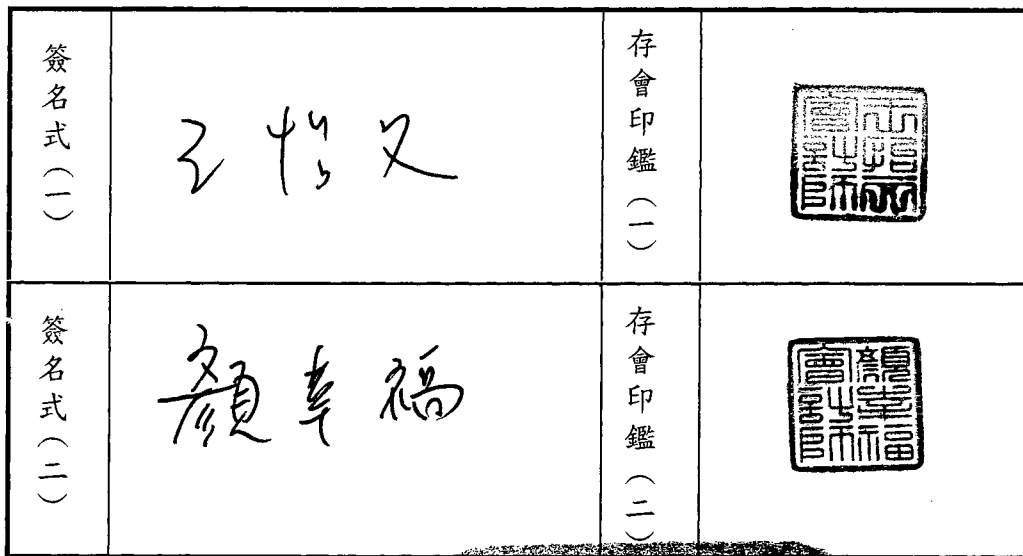 簽名式（一）
王怡文
存會印鑑（一）
王怡文
會計師
簽名式（二）
顏幸福
存會印鑑（二）
顏幸福
會計師